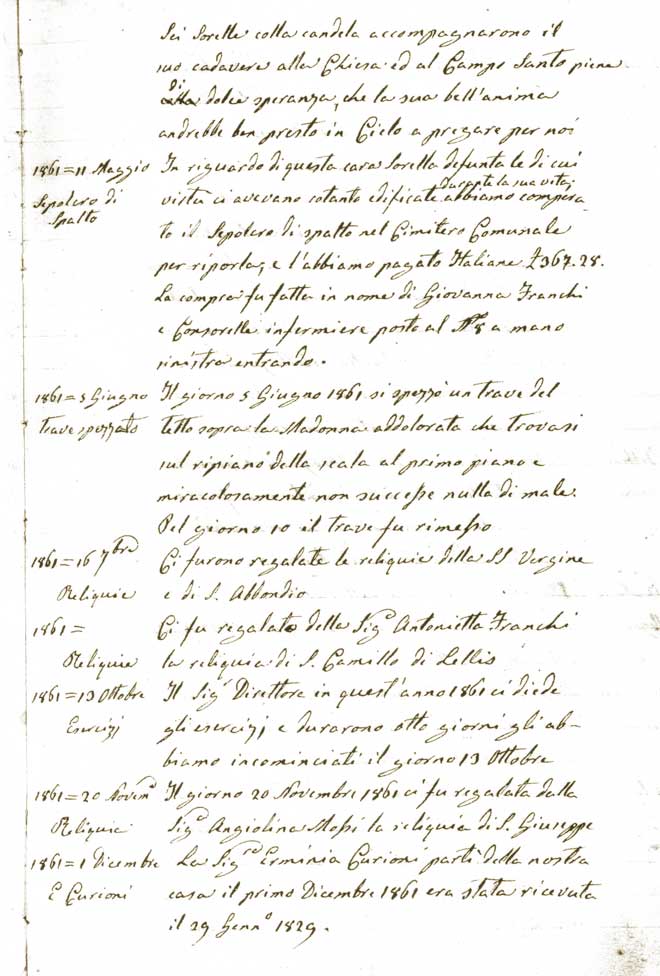 Sei Sorelle colla candela accompagnarono il
suo cadavere alla Chiesa ed al Campo Santo piene
di dolce speranza, che la sua bell'anima
andrebbe ben presto in Cielo a pregare per noi
1861=11 Maggio In riguardo di questa cara Sorella defunta le di cui
Sepolcro di virtù ci avevano cotanto edificate durante la sua vita, abbiamo compera-
Spalto to il Sepolcro di spalto nel Cimitero Comunale
per riporla, e l'abbiamo pagato Italiane £367.28.
La compra fu fatta in nome di Giovanna Franchi
e Consorelle infermiere posto al N° 8 a mano
sinistra entrando.
1861=5 Giugno Il giorno 5 Giugno 1861 si spezzò un trave del
trave spezzato tetto sopra la Madonna addolorata che trovasi
sul ripiano della scala al primo piano e
miracolosamente non successe nulla di male.
Pel giorno 10 il trave fu rimesso
1861=16 7bre Ci furono regalate le reliquie della SS Vergine
Reliquie e di S. Abbondio
1861= Ci fu regalato della Sigra Antonietta Franchi
Reliquie la reliquia di S. Camillo di Lellis
1861=13 Ottobre Il Sigr Direttore in quest'anno 1861 ci diede
Esercizj gli esercizj e durarono otto giorni gli ab-
biamo incominciati il giorno 13 Ottobre
1861=20 Novemb Il giorno 20 Novembre 1861 ci fu regalata dalla
Reliquia Sigra Angiolina Mossi la reliquia di S. Giuseppe
1861=1 Dicembre La Sigra Erminia Curioni partì della nostra
E Curioni casa il primo Dicembre 1861 era stata ricevuta
il 29 Genno 1829.